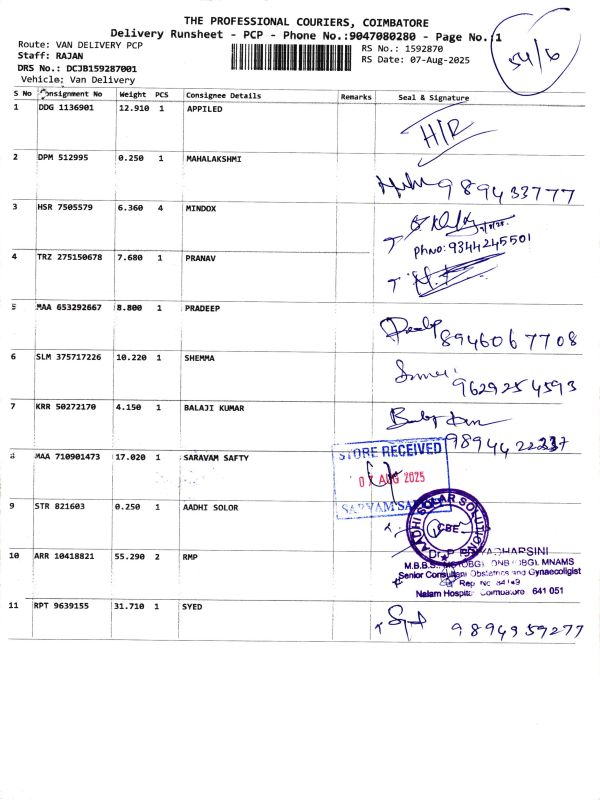 THE PROFESSIONAL COURIERS, COIMBATORE
Delivery Runsheet - PCP - Phone No.:9047080280 - Page No.:1
54/6
Route: VAN DELIVERY PCP
RS No.: 1592870
Staff: RAJAN
RS Date: 07-Aug-2025
DRS No.: DCJB159287001
Vehicle: Van Delivery
S No Consignment No Weight PCS Consignee Details Remarks Seal & Signature
1 DDG 1136901 12.910 1 APPILED
H/R
2 DPM 512995 0.250 1 MAHALAKSHMI
989433777
3 HSR 7505579 6.360 4 MINDOX
PhNo: 9344245501
4 TRZ 275150678 7.680 1 PRANAV
5 MAA 653292667 8.800 1 PRADEEP
8946067708
6 SLM 375717226 10.220 1 SHEMMA
9629254593
7 KRR 50272170 4.150 1 BALAJI KUMAR
8 MAA 710901473 17.020 1 SARAVAM SAFTY
STORE RECEIVED
07 AUG 2025
9 STR 821603 0.250 1 AADHI SOLOR
AADHI SOLAR SOLUTION
CBE
10 ARR 10418821 55.290 2 RMP
Dr. P. PRIYADHARSINI
M.B.B.S., MS(OBG), DNB (OBG), MNAMS
Senior Consultant Obstetrics and Gynaecologist
Reg No 84149
Nalam Hospital Coimbatore 641 051
11 RPT 9639155 31.710 1 SYED
9894959277